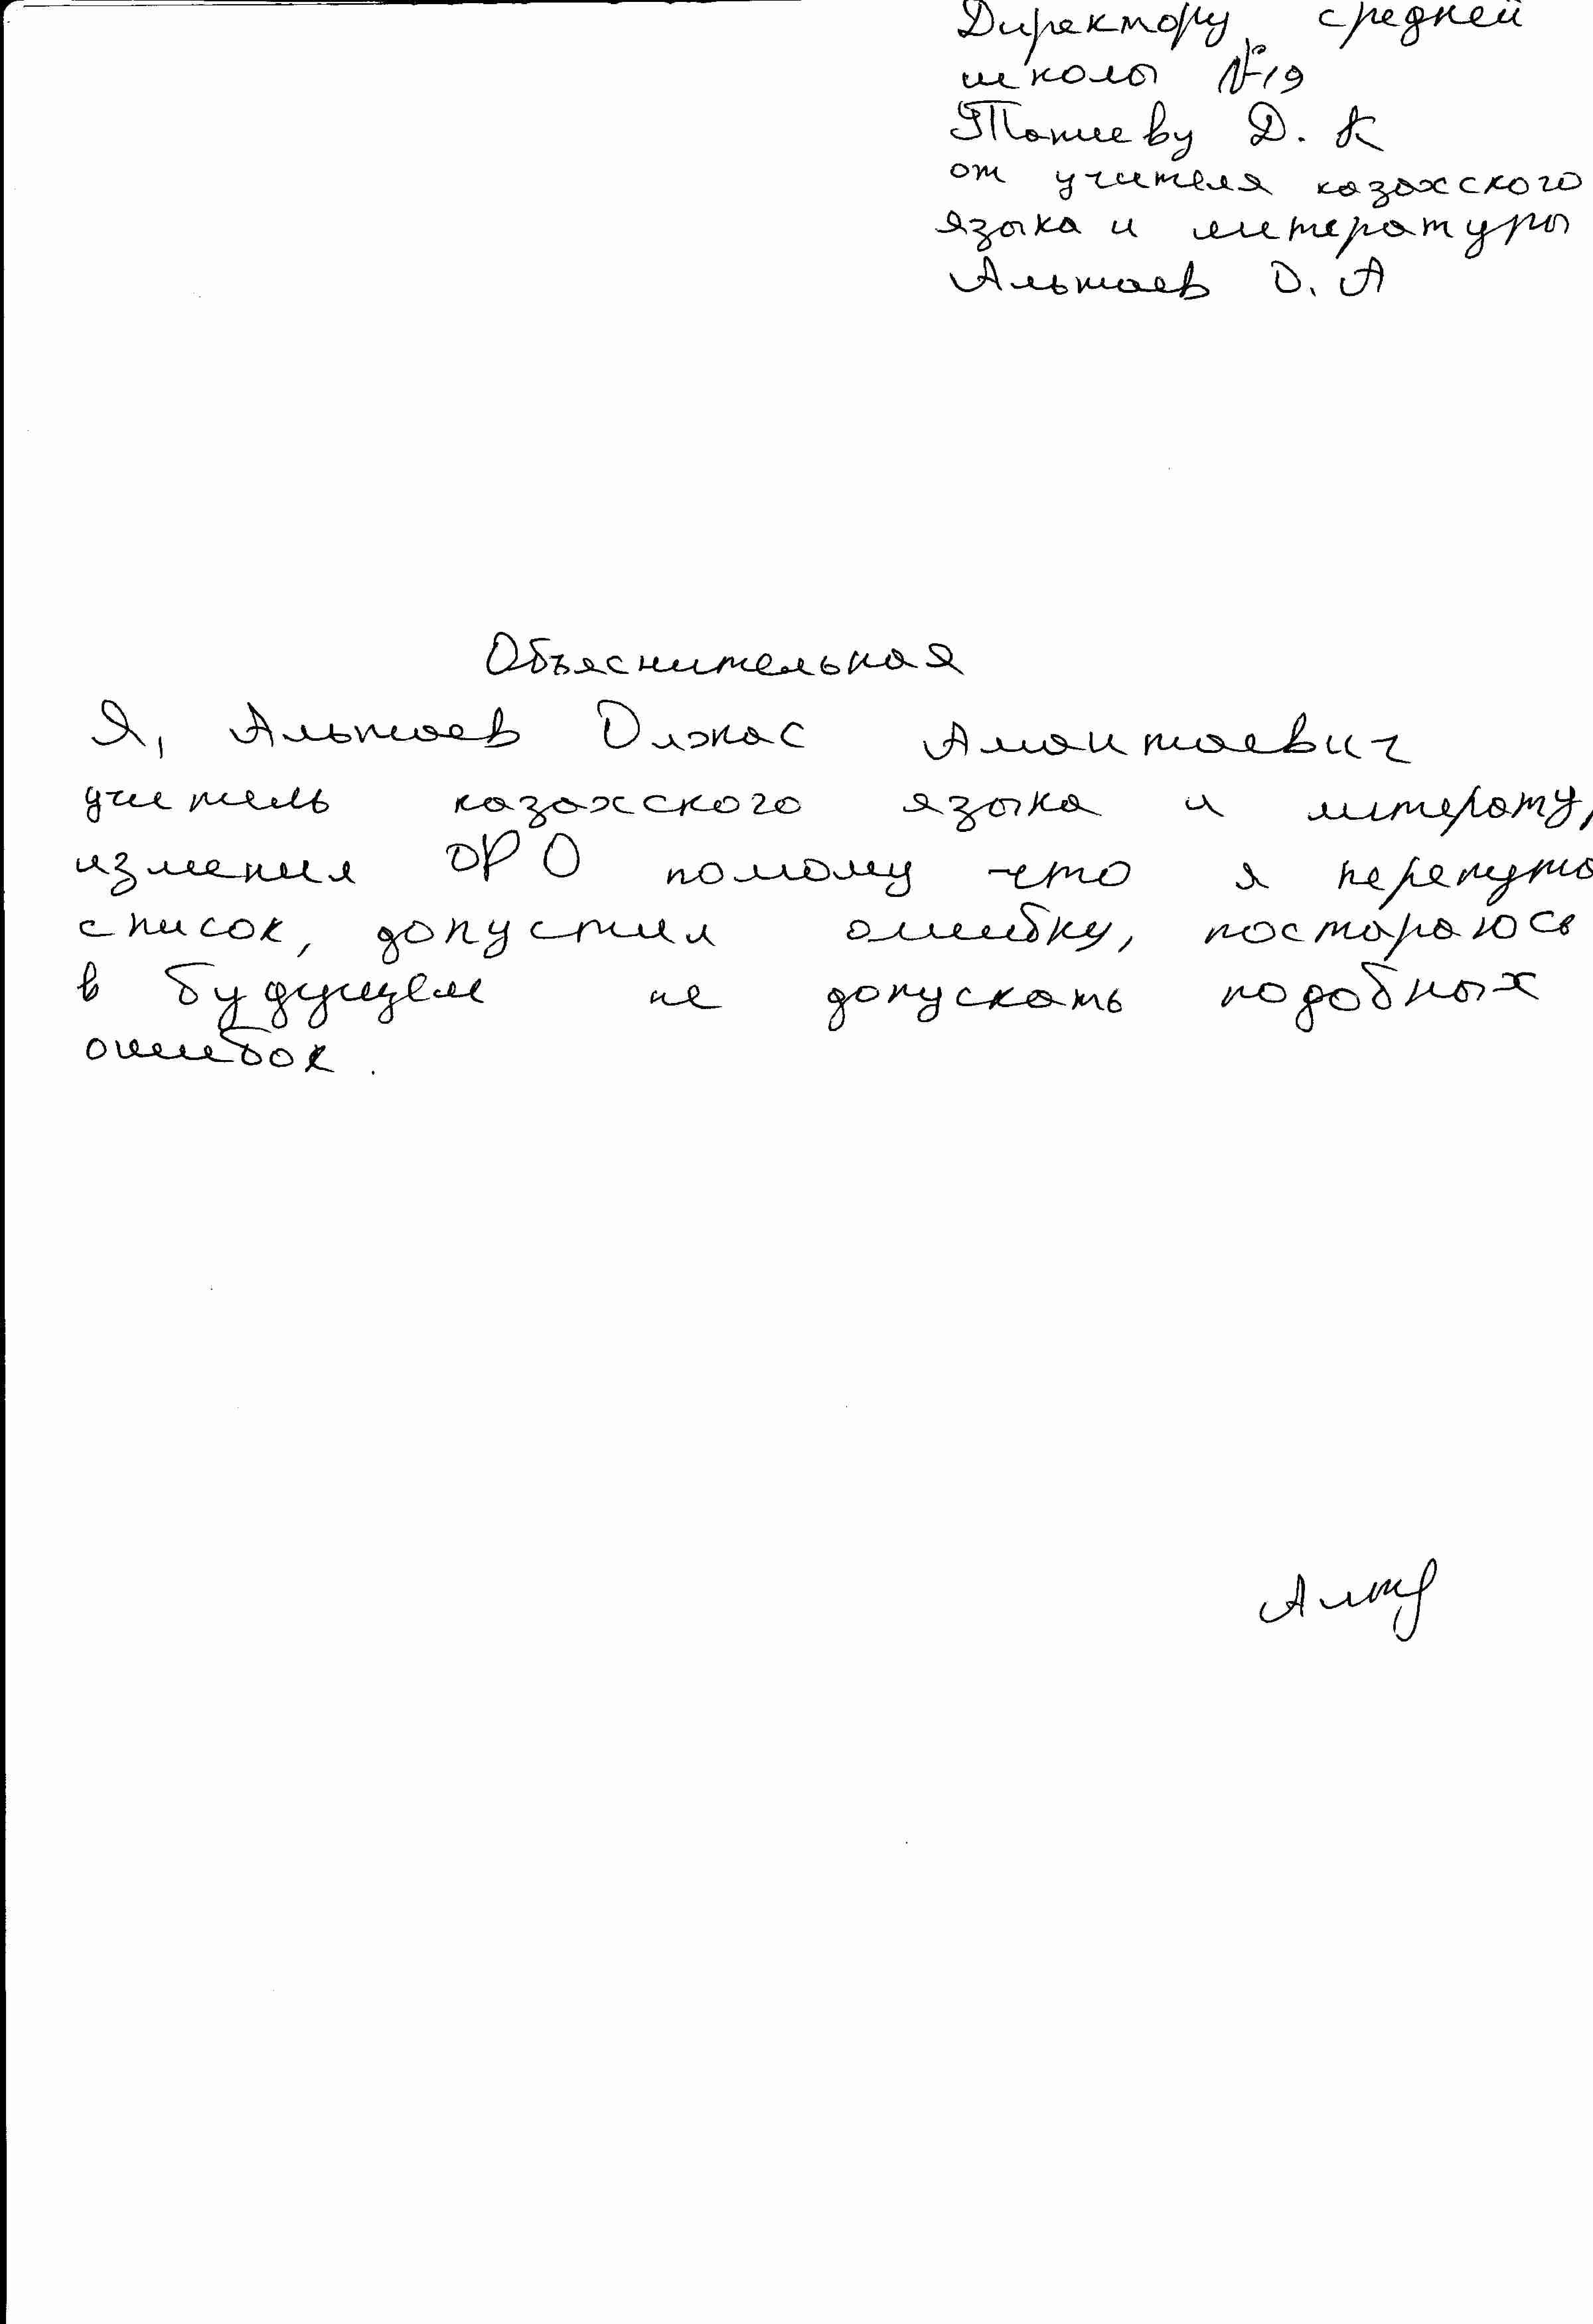 Директору средней
школы №19
Ташеву Д. К
от учителя казахского
языка и литературы
Альтаев О. А
Объяснительная
Я, Альтаев Олжас Амантаевич
учитель казахского языка и литерату
изменил ФО потому что я перепута
список, допустил ошибку, постараюсь
в будущем не допускать подобных
ошибок.